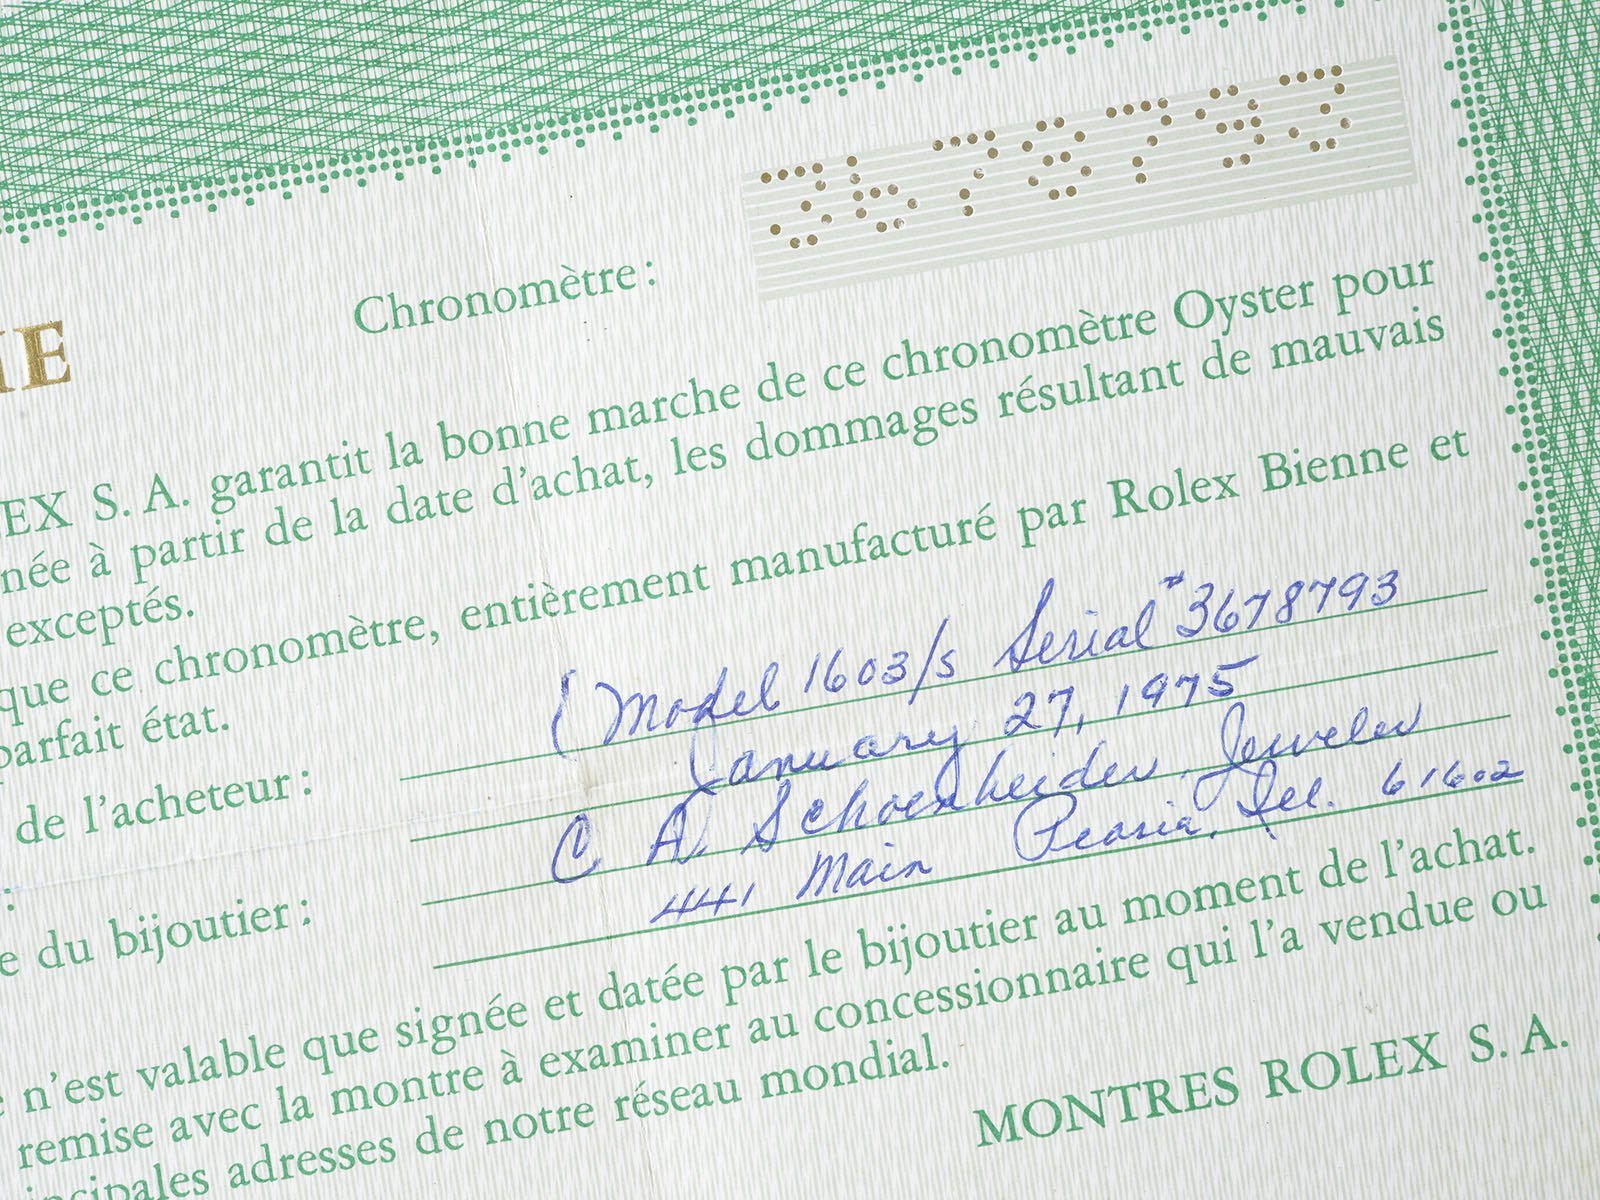 3678793
Chronomètre:
IE
EX S. A. garantit la bonne marche de ce chronomètre Oyster pour
née à partir de la date d'achat, les dommages résultant de mauvais
exceptés.
que ce chronomètre, entièrement manufacturé par Rolex Bienne et
parfait état.
(Model 1603/s Serial #3678793
de l'acheteur:
January 27, 1975
:
C. A. Schoenheider, Jeweler
e du bijoutier:
441 Main Peoria, Ill. 61602
n'est valable que signée et datée par le bijoutier au moment de l'achat.
remise avec la montre à examiner au concessionnaire qui l'a vendue ou
incipales adresses de notre réseau mondial.
MONTRES ROLEX S. A.